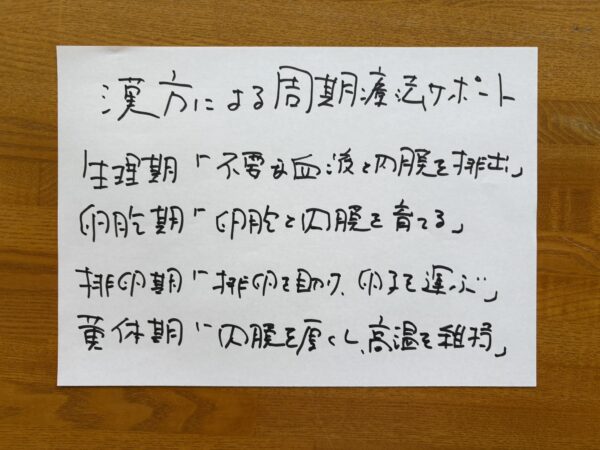 漢方による周期療法サポート
生理期「不要な血液と内膜を排出」
卵胞期「卵胞と内膜を育てる」
排卵期「排卵を助け、卵子を運ぶ」
黄体期「内膜を厚くし、高温を維持」